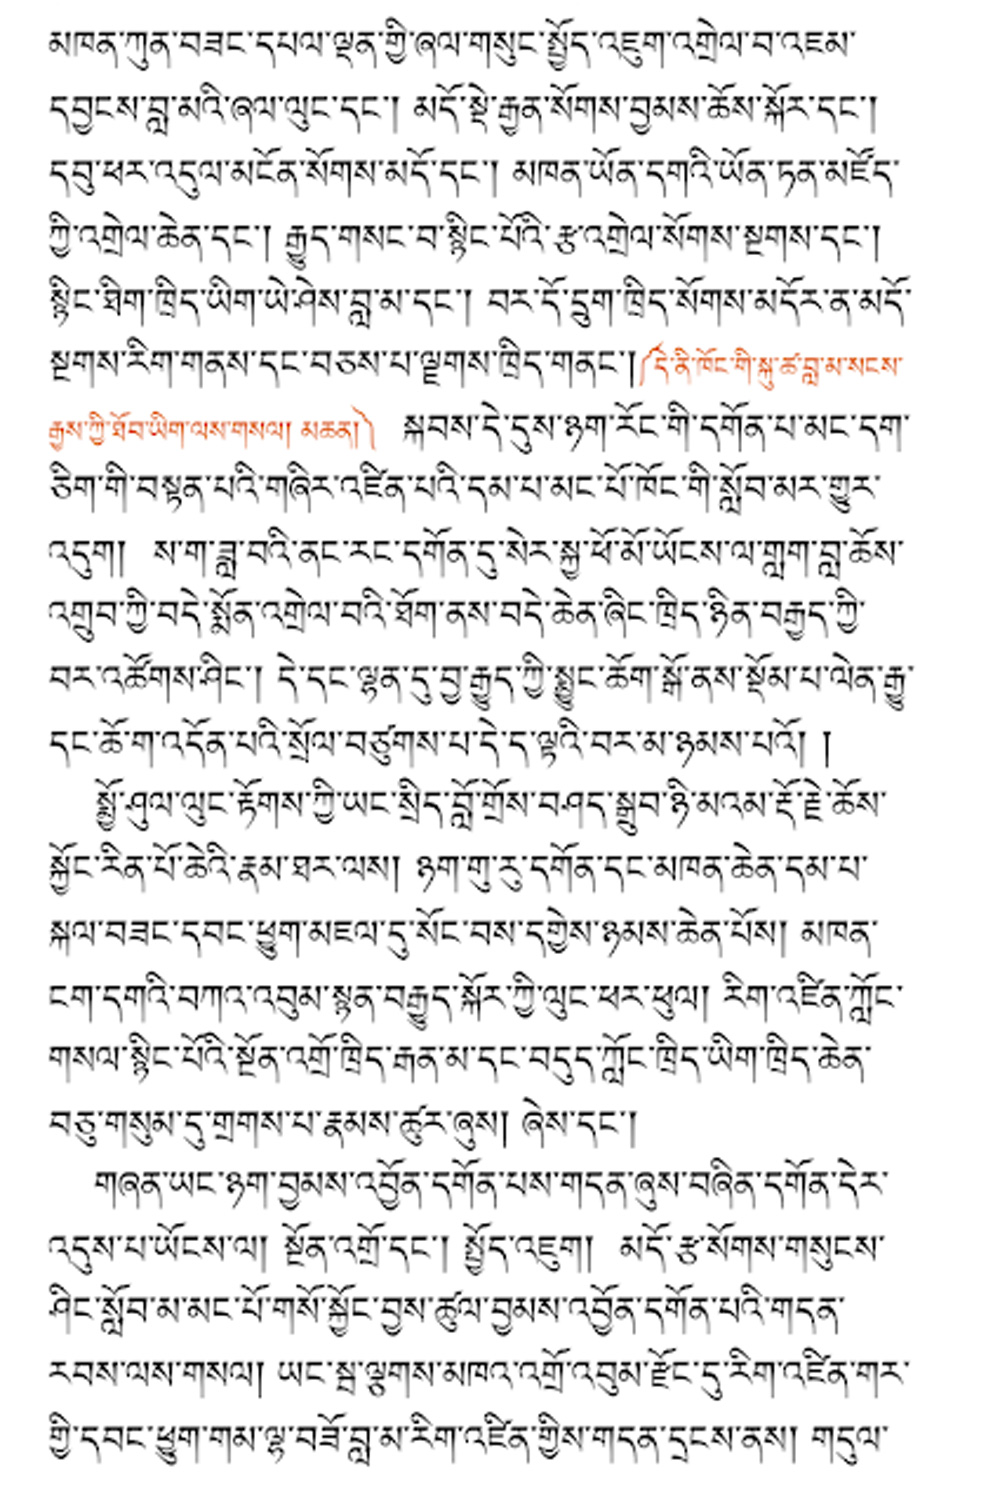 མཁན་ཀུན་བཟང་དཔལ་ལྡན་གྱི་ཞལ་གསུང་སྤྱོད་འཇུག་འགྲེལ་བ་འཇམ་
དབྱངས་བླ་མའི་ཞལ་ལུང་དང་། མདོ་སྡེ་རྒྱན་སོགས་བྱམས་ཆོས་སྐོར་དང་།
དབུ་ཕར་འདུལ་མངོན་སོགས་མདོ་དང་། མཁན་ཡོན་དགའི་ཡོན་ཏན་མཛོད་
ཀྱི་འགྲེལ་ཆེན་དང་། རྒྱུད་གསང་བ་སྙིང་པོའི་རྩ་འགྲེལ་སོགས་སྔགས་དང་།
སྙིང་ཐིག་ཁྲིད་ཡིག་ཡེ་ཤེས་བླ་མ་དང་། བར་དོ་དྲུག་ཁྲིད་སོགས་མདོར་ན་མདོ་
སྔགས་རིག་གནས་དང་བཅས་པ་ལྗགས་ཁྲིད་གནང་།༼དེ་ནི་ཁོང་གི་སྐུ་ཚ་བླ་མ་སངས་
རྒྱས་ཀྱི་ཐོབ་ཡིག་ལས་གསལ། མཆན།༽ སྐབས་དེ་དུས་ཉག་རོང་གི་དགོན་པ་མང་དག་
ཅིག་གི་བསྟན་པའི་གཞིར་འཛིན་པའི་དམ་པ་མང་པོ་ཁོང་གི་སློབ་མར་གྱུར་
འདུག། ས་ག་ཟླ་བའི་ནང་རང་དགོན་དུ་སེར་སྐྱ་ཕོ་མོ་ཡོངས་ལ་གླག་བླ་ཆོས་
འགྲུབ་ཀྱི་བདེ་སྨོན་འགྲེལ་བའི་ཐོག་ནས་བདེ་ཆེན་ཞིང་ཁྲིད་ཉིན་བརྒྱད་ཀྱི་
བར་འཚོགས་ཤིང་། དེ་དང་ལྷན་དུ་བྱ་རྒྱུད་ཀྱི་སྨྱུང་ཆོག་སྒོ་ནས་སྡོམ་པ་ལེན་རྒྱུ་
དང་ཆོ་ག་འདོན་པའི་སྲོལ་བཙུགས་པ་དེ་ད་ལྟའི་བར་མ་ཉམས་པའོ། །
སྨྱོ་ཤུལ་ལུང་རྟོགས་ཀྱི་ཡང་སྲིད་བློ་གྲོས་བཤད་སྒྲུབ་ཉི་མའམ་རྡོ་རྗེ་ཆོས་
སྐྱོང་རིན་པོ་ཆེའི་རྣམ་ཐར་ལས། ཉག་གུ་རུ་དགོན་དང་མཁན་ཆེན་དམ་པ་
སྐལ་བཟང་དབང་ཕྱུག་མཇལ་དུ་སོང་བས་དགྱེས་ཉམས་ཆེན་པོས། མཁན་
ངག་དགའི་བཀའ་འབུམ་སྙན་བརྒྱུད་སྐོར་ཀྱི་ལུང་ཕར་ཕུལ། རིག་འཛིན་ཀློང་
གསལ་སྙིང་པོའི་སྔོན་འགྲོ་ཁྲིད་རྒན་མ་དང་བདུད་ཀློང་ཁྲིད་ཡིག་ཁྲིད་ཆེན་
བཅུ་གསུམ་དུ་གྲགས་པ་རྣམས་ཚུར་ཞུས། ཞེས་དང་།
གཞན་ཡང་ཉག་བྱམས་འབྱོན་དགོན་པས་གདན་ཞུས་བཞིན་དགོན་དེར་
འདུས་པ་ཡོངས་ལ། སྔོན་འགྲོ་དང་། སྤྱོད་འཇུག། མདོ་རྩ་སོགས་གསུངས་
ཤིང་སློབ་མ་མང་པོ་གསོ་སྐྱོང་བྱས་ཚུལ་བྱམས་འབྱོན་དགོན་པའི་གདན་
རབས་ལས་གསལ། ཡང་སྦ་ལྕགས་མཁའ་འགྲོ་འབུམ་རྫོང་དུ་རིག་འཛིན་གར་
གྱི་དབང་ཕྱུག་གམ་ལྷ་བཟོ་བླ་མ་རིག་འཛིན་གྱིས་གདན་དྲངས་ནས། གདུལ་